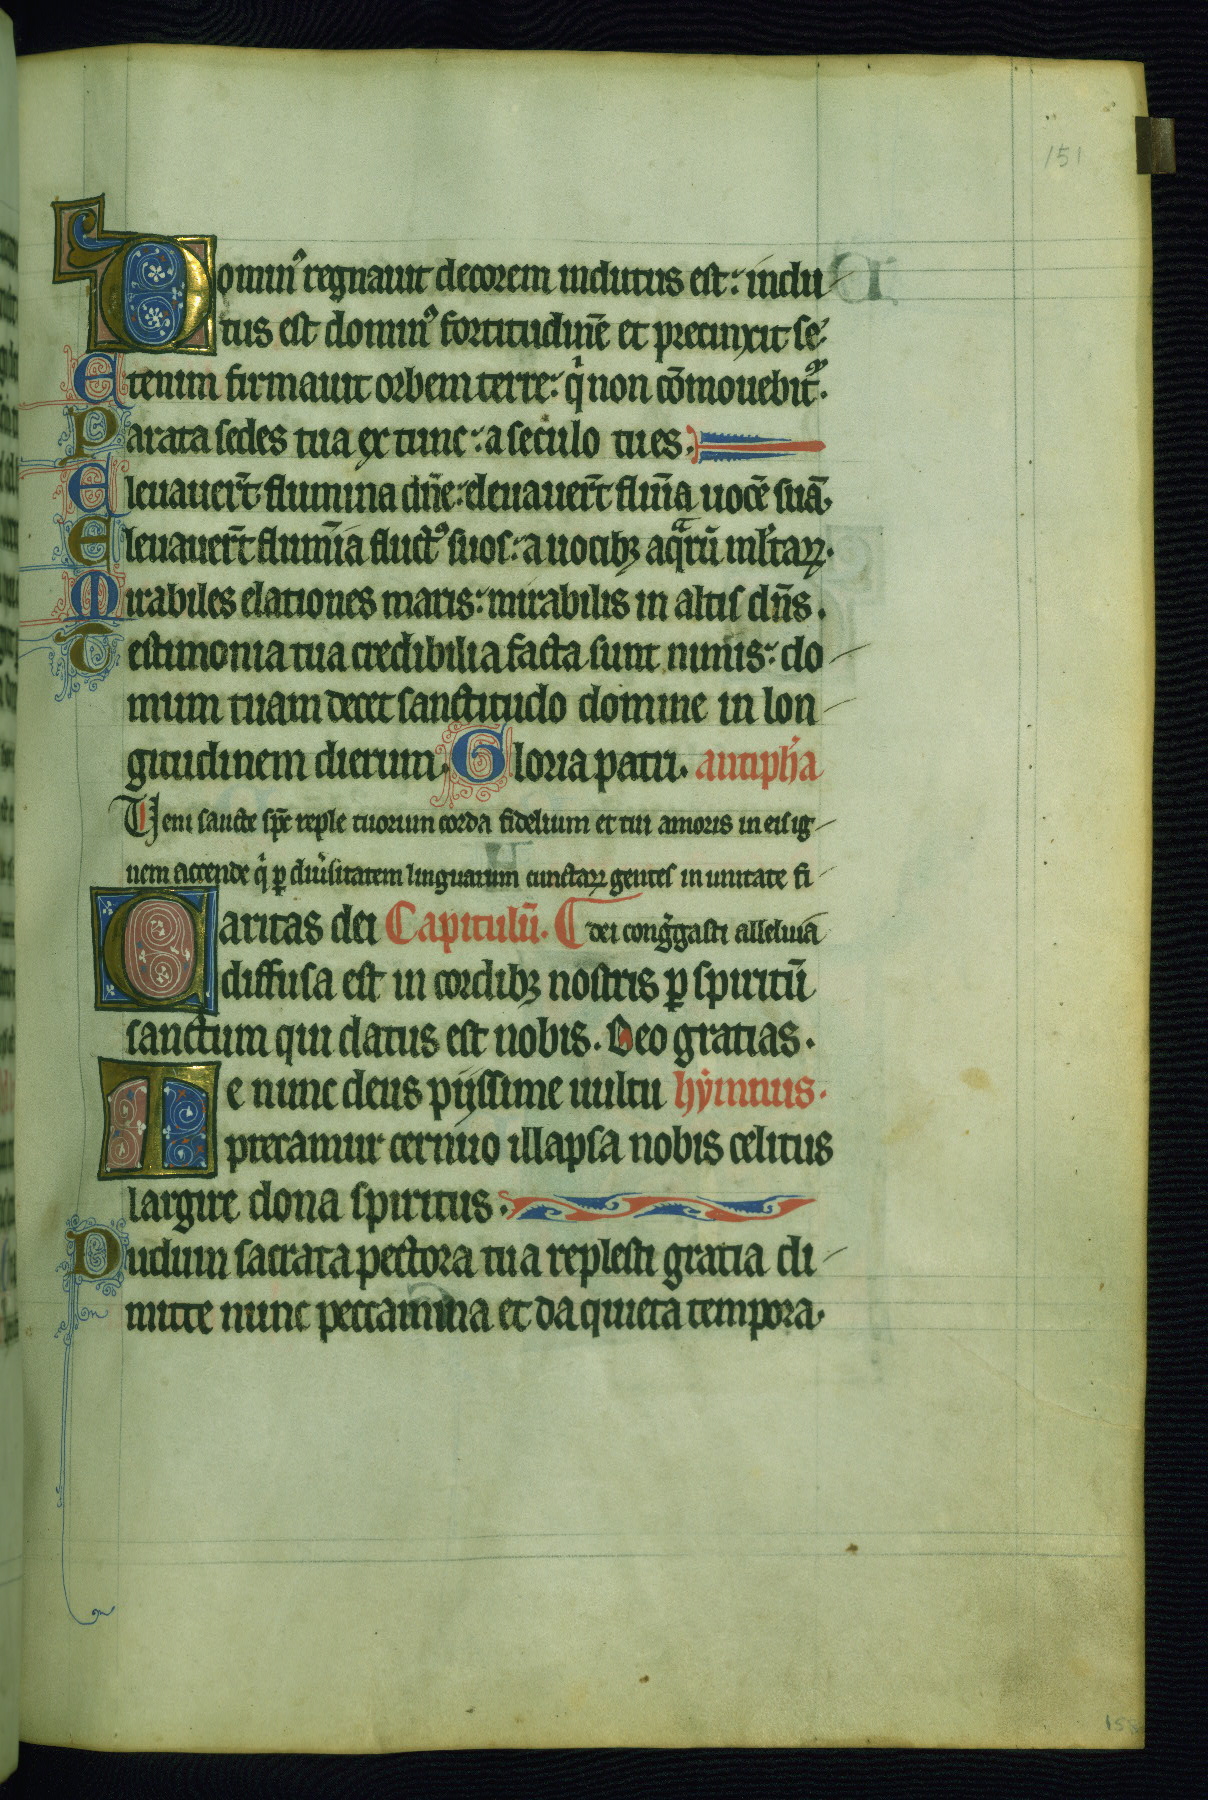 151
Domin᷒ regnauit decorem indutus est: indu
tus est domin᷒ fortitudinē et precinxit se.
Etenim firmauit orbem terre: q̇ non cōmouebit᷒.
Parata sedes tua ex tunc: a seculo tu es.
Eleuauer̄t flumina dn̄e: eleuauer̄t flum̄a uocē suā.
Eleuauer̄t flumīa fluct᷒ suos: a uocibꝫ aqͣrū ml̄taꝝ.
Mirabiles elationes maris: mirabilis in altis dn̄s.
Testimonia tua credibilia facta sunt nimis: do
mum tuam decet sanctitudo domine in lon
gitudinem dierum. Gloria patri. antiph̄a
Veni sancte sp̄c reple tuorum corda fidelium et tui amoris in eis ig
nem accende q̇ ꝑ diu̇sitatem linguarum cunctaꝝ gentes in unitate fi
Caritas dei Capitulū. dei cong̀gasti alleluia
diffusa est in cordibꝫ nostris ꝑ spiritū
sanctum qui datus est nobis. Deo gratias.
Te nunc deus pijssime uultu hẏmnus.
precamur cernuo illapsa nobis celitus
largire dona spiritus.
Dudum sacrata pectora tua replesti gratia di
mitte nunc peccamina et da quieta tempora.